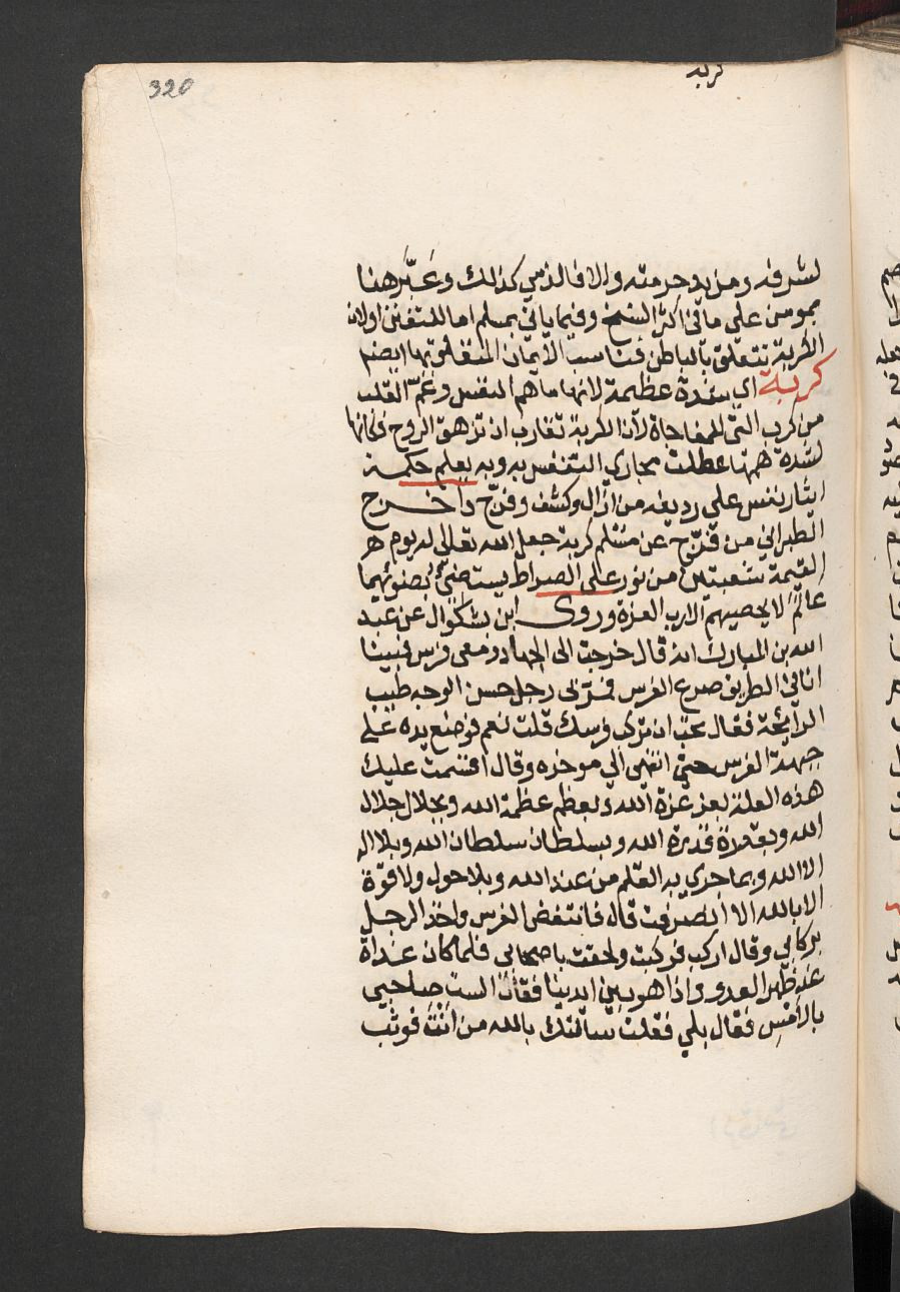 320
كربه
لشرفه ومزيد حرمته والا فالذمي كذلك وعبّر هنا
بمومن على ما في اكثر النسخ وفيما ياتي بمسلم اما للتفنن او لان
الكربة تتعلق بالباطن فناسب الايمان المتعلق بها ايضا
كربة اي شدة عظيمة لانها ما هم النفس وغمّ القلب
من كرب التي للمفاجاة لأن الكربة تقارب ان تزهق الروح فكانها
لشدة همها عطلت مجاري التنفس به وبه يعلم حكمة
ايثار نفس علي رديفه من ازال وكشف وفرّج واخرج
الطبراني من فرّج عن مسلم كربة جعل الله تعالى له يوم
القيمة شعبتين من نور على الصراط يستضيء بضوئهما
عالم لا يحصيهم الا رب العزة وروى ابن بشكوال عن عبد
الله بن المبارك انه قال خرجت الى الجهاد ومعي فرس فبينا
انا في الطريق صرع الفرس فمرّ بي رجل حسن الوجه طيب
الرائحة فقال تحب ان تركب فرسك قلت نعم فوضع يده على
جبهة الفرس حتى انتهى الي موخره وقال اقسمت عليك
هذه العلة بعز عزة الله وبعظم عظمة الله وبجلال جلال
الله وبقدرة قدرة الله وبسلطان سلطان الله وبلا اله
الا الله وبما جري به القلم من عند الله وبلا حول ولا قوّة
الا بالله الا انصرفت قال فانتفض الفرس واخذ الرجل
بركابي وقال اركب فركبت ولحقت باصحابي فلما كان غداة
غد ظهر العدو واذا هو بين ايدينا فقلت الست صاحبي
بالأمس فقال بلي فقلت سألتك بالله من انت فوثب